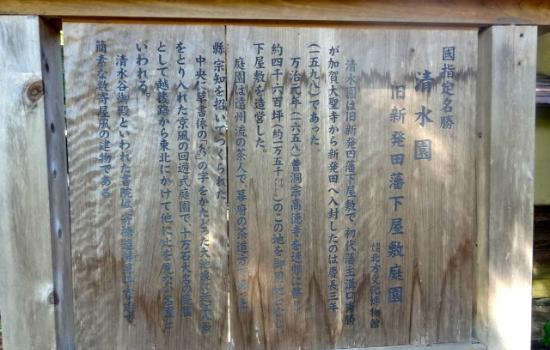 國指定名勝
清水園
旧新発田藩下屋敷庭園
北方文化博物館
清水園は旧新発田藩下屋敷で、初代藩主溝口秀勝
が加賀大聖寺から新発田へ入封したのは慶長三年
(一五九八)であった。
万治元年(一六五八)曹洞宗高徳寺を
約四千六百坪(約一万五千
のこの地を
下屋敷を造営した。
庭園は遠州流の茶人で、幕府の茶道方
縣宗知を招いてつくられた
中央に草書体の「水」の字をかたどった大
をとり入れた京風の回遊式庭園で、十万石大名の
として越後路から東北にかけて他に
いわれる。
清水谷御殿といわれた書院は
簡素な数寄屋風の建物である